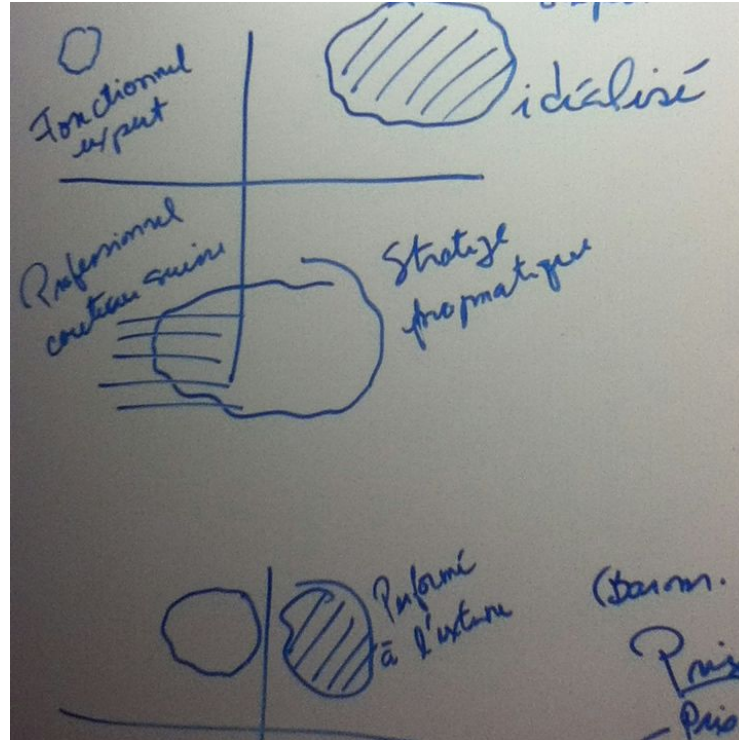 Fonctionnel
expert
idéalisé
Professionnel
couteau suisse
Stratège
pragmatique
Performé
à l'externe
(Barom.